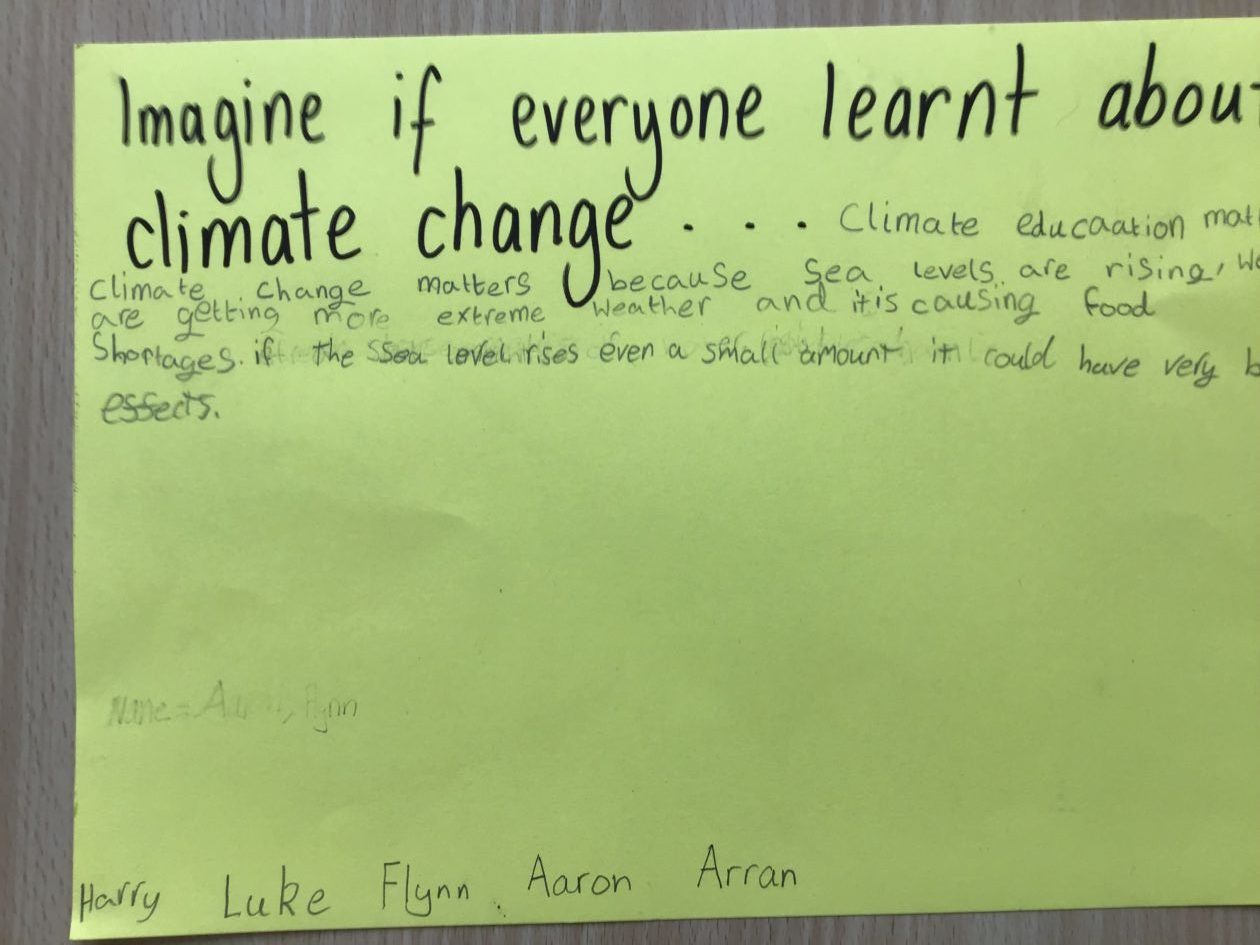 Imagine if everyone learnt about
climate change . . . Climate educaation mat
Climate change matters because Sea levels are rising, We
are getting more extreme weather and it is causing food
Shortages. if the Ssea level rises even a small amount it could have very b
essects.
Name = Flynn
Harry Luke Flynn Aaron Arran